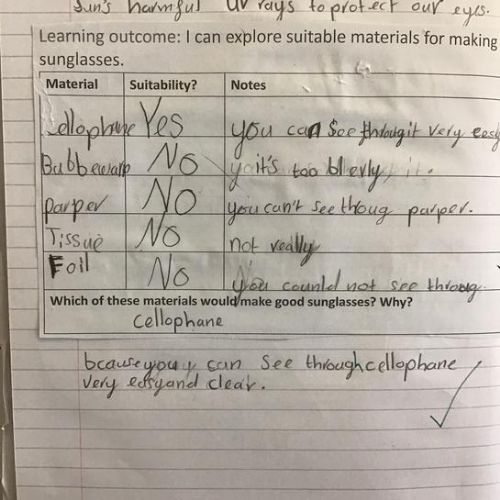 Sun's harmful UV rays to protect our eyes.
Learning outcome: I can explore suitable materials for making
sunglasses.
Material Suitability? Notes
Cellophane Yes you can see throughit very easy
Bubbewarp No it's too blerly
parper No you can't see thoug parper.
Tissue No not really
Foil No you counld not see throug
Which of these materials would make good sunglasses? Why?
cellophane
bcause you can see through cellophane
very easy and clear.